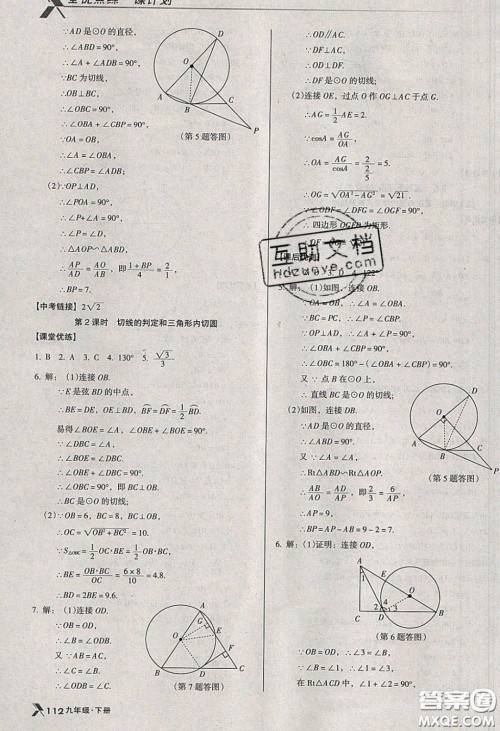 ∵AD是⊙O的直径,
∴∠ABD=90°,
∴∠A+∠ADB=90°,
∵BC为切线,
∴OB⊥BC,
∴∠OBC=90°,
∴∠OBA+∠CBP=90°,
∵OA=OB,
∴∠A=∠OBA,
∴∠CBP=∠ADB;
(第5题答图)
(2)∵OP⊥AD,
∴∠POA=90°,
∴∠P+∠A=90°,
∴∠P=∠D,
∴△AOP∽△ABD,
∴AP/AD=AO/AB,即(1+BP)/4=2/1,
∴BP=7.
【中考链接】2√2
第2课时 切线的判定和三角形内切圆
【课堂优练】
1. B 2. A 3. C 4. 130° 5. √3/3
6. 解:(1)连接OB,
∵E是弦BD的中点,
∴BE=DE,OE⊥BD,BF=DF=1/2BD,
易得∠BOE=∠A,∠OBE+∠BOE=90°.
∵∠DBC=∠A,
∴∠BOE=∠DBC.
∴∠OBE+∠DBC=90°.
∴∠OBC=90°,即BC⊥OB.
∴BC是⊙O的切线;
(2)∵OB=6,BC=8,BC⊥OB,
∴OC=√(OB²+BC²)=10.
∵S△OBC=1/2OC·BE=1/2OB·BC,
∴BE=OB·BC/OC=6×8/10=4.8.
∴BD=2BE=9.6.
7. 解:(1)连接OD.
∵OB=OD,
∴∠B=∠ODB.
又∵AB=AC,
∴∠B=∠C.
∴∠ODB=∠C.
(第7题答图)
112 九年级·下册
∴OD∥AC.
∵DF⊥AC,
∴OD⊥DF.
∴DF是⊙O的切线;
(2)连接OE,过点O作OG⊥AC于点G.
∴AG=1/2AE=2.
∵cosA=AG/OA,
∴OA=AG/cosA=2/(2/5)=5.
∴OG=√(OA²-AG²)=√21.
∵∠ODF=∠DFG=∠OGF=90°.
∴四边形OGFD为矩形.
5. 解:(1)如图,连接OB,
∴∠OBC=90°.
又∵点B在⊙O上,
∴直线BC是⊙O的切线;
(2)如图,连接DB.
∵AD是⊙O的直径,
∴∠ABD=90°.
又∵∠A=∠A,
∴Rt△ABD∽Rt△AOP.
∴AB/AO=AD/AP,即2/3=6/AP,
∴AP=9.
∴BP=AP-AB=9-2=7.
(第5题答图)
6. 解:(1)证明:连接OD,
(第6题答图)
∵OB=OD,∴∠3=∠B,
又∵∠B=∠1,∴∠1=∠3.
在Rt△ACD中,∠1+∠2=90°,
互助文档
Hdzuowye.com
答案圈
MXQE.COM